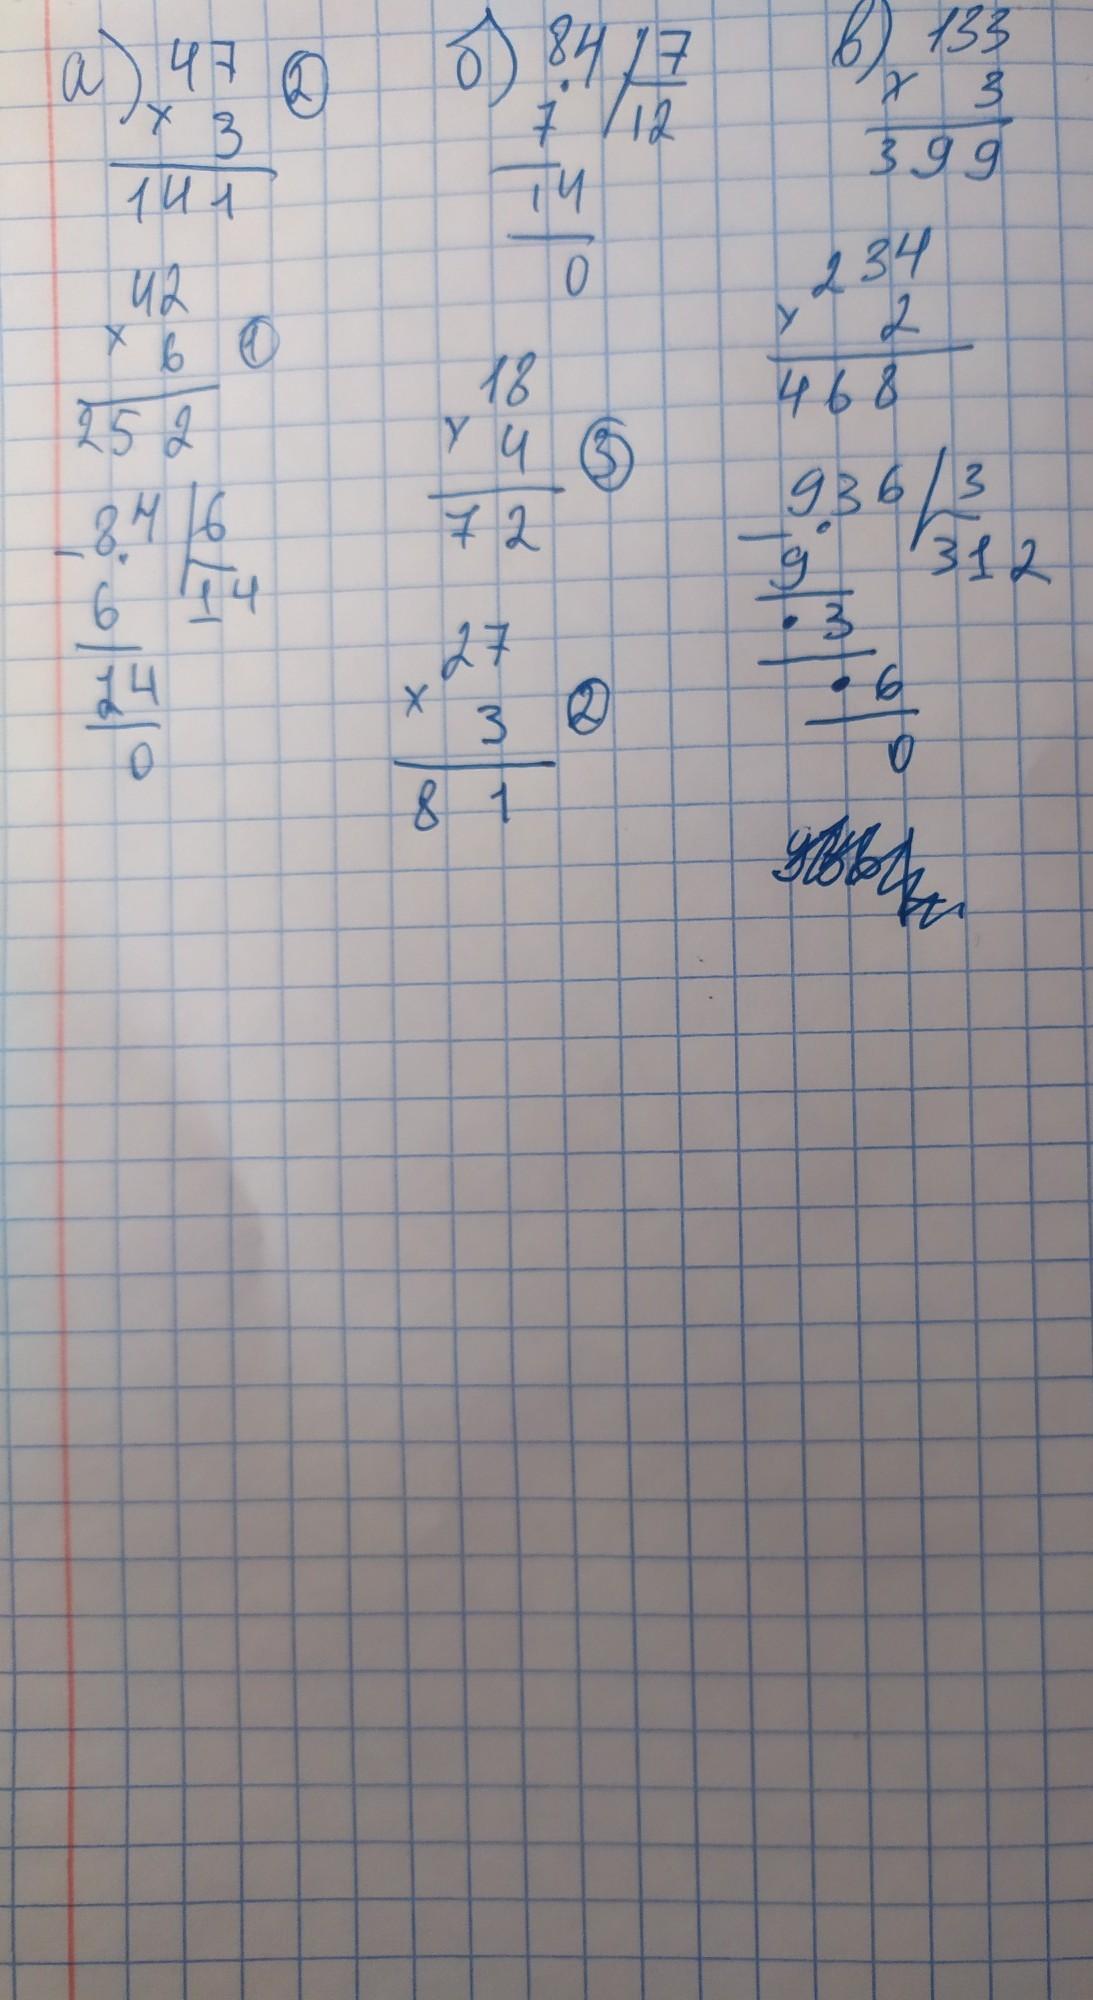 а) 47 ②
× 3
141
42
× 6 ①
252
- 84 6
6 14
24
0
б) 84 7
7 12
14
0
18
× 4 ③
72
27
× 3 ②
81
в) 133
× 3
399
234
× 2
468
- 936 3
9 312
3
6
0